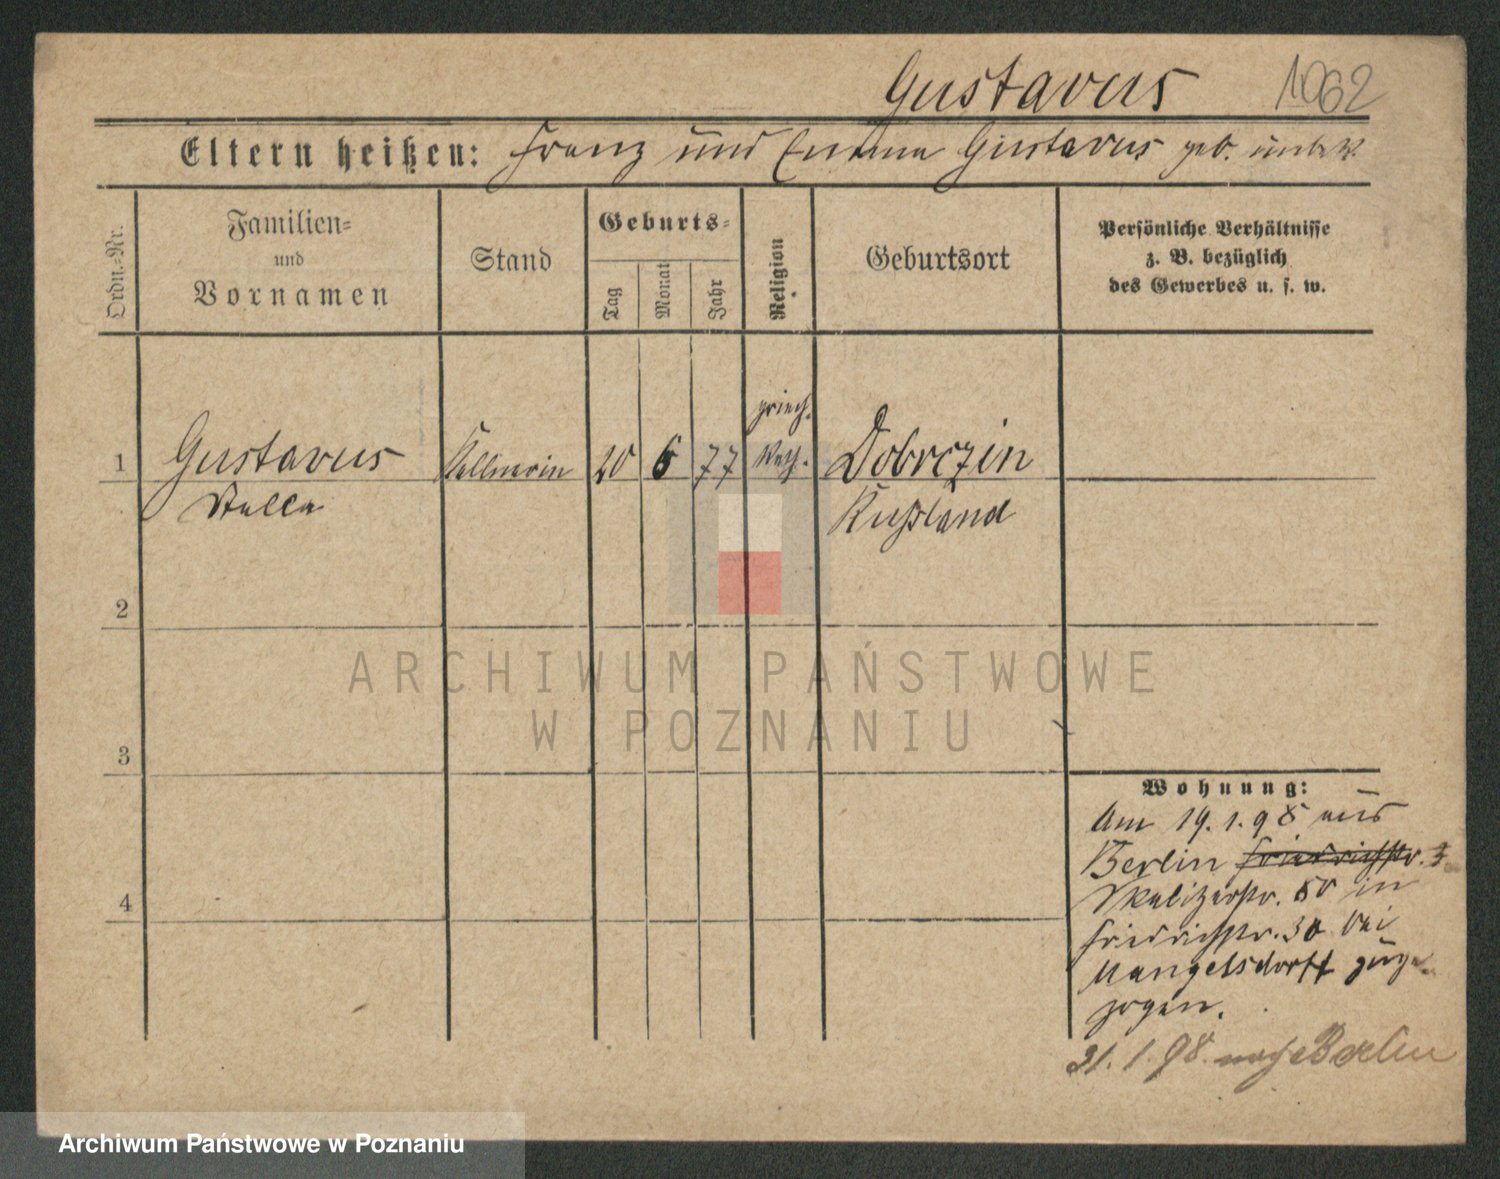 Gustavus 1062
Eltern heißen: Franz und Emma Gustavus geb. unbek.
Ordn.=Nr.
Familien=
und
Vornamen
Stand
Geburts=
Tag
Monat
Jahr
Religion
Geburtsort
Persönliche Verhältnisse
z. B. bezüglich
des Gewerbes u. s. w.
1 Gustavus Kellnerin 20 6 77 griech. Kath. Dobrczin
Stella Rußland
2
3
4
Wohnung:
Am 19.1.98 aus
Berlin Friedrichstr. 3
Skalitzerstr. 50 in
Friedrichstr. 30 bei
Mangelsdorff zuge-
zogen.
21.1.98. nach Berlin
ARCHIWUM PAŃSTWOWE
W POZNANIU
Archiwum Państwowe w Poznaniu